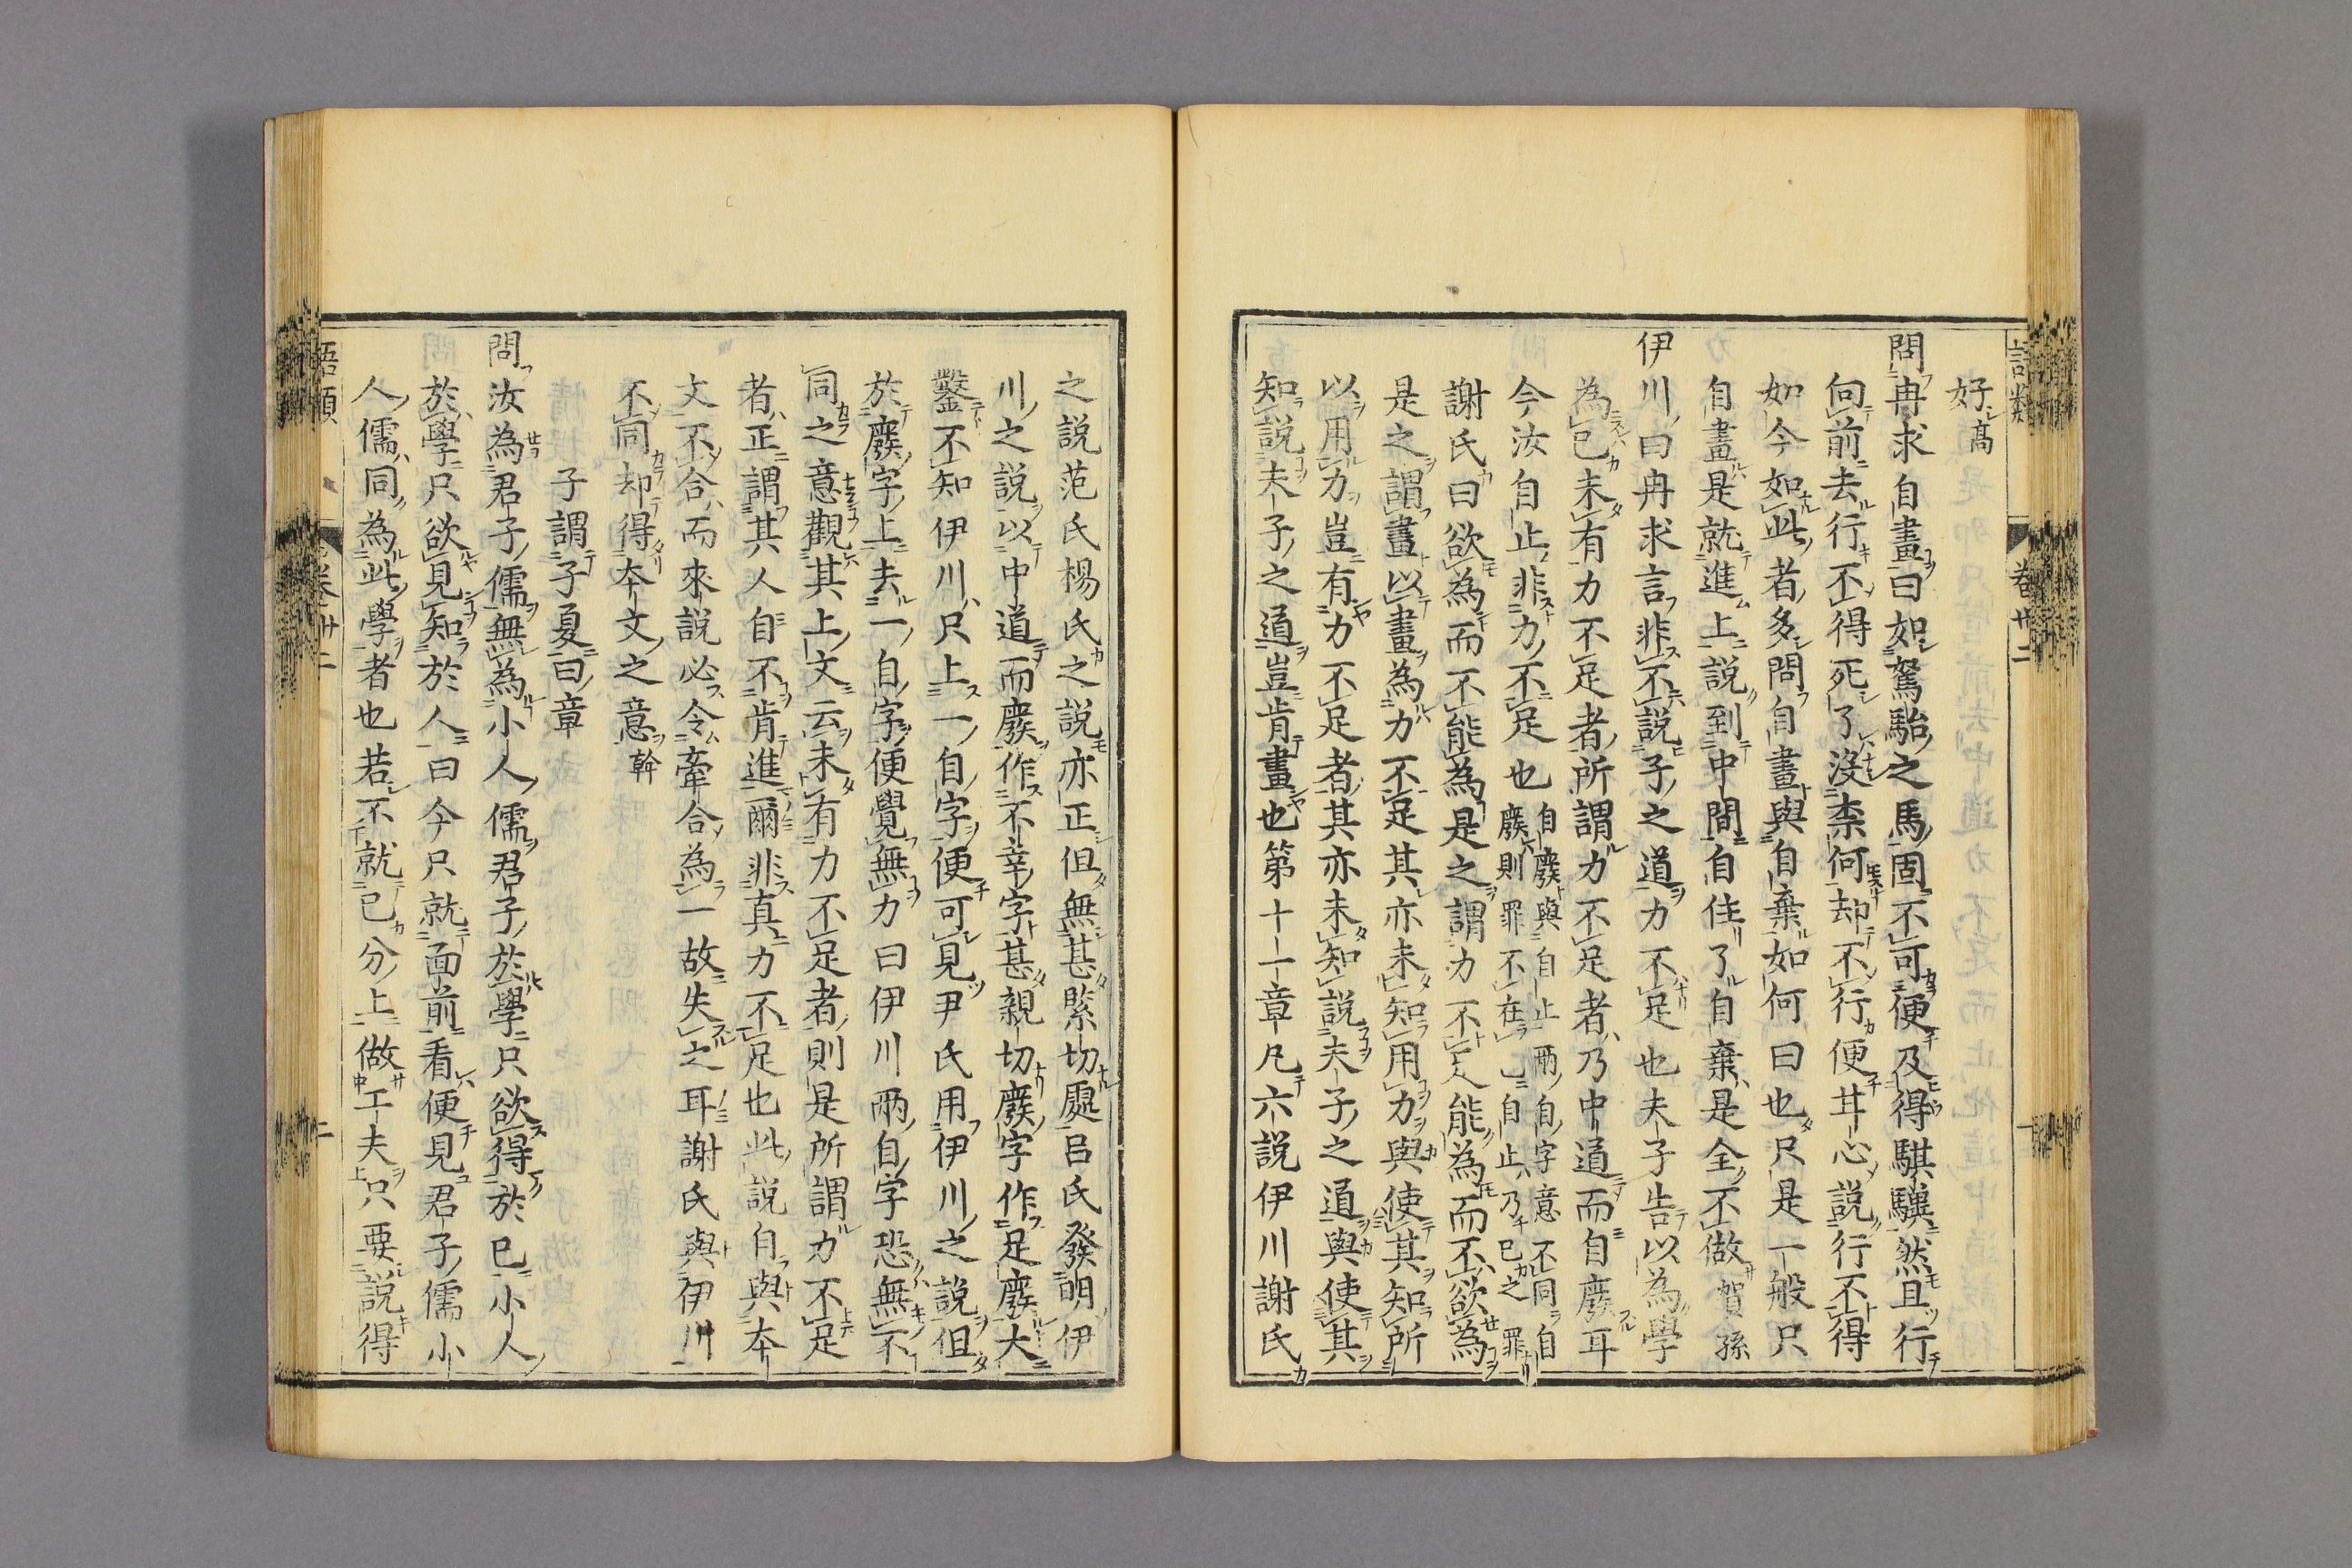 語類
卷廿二
好高
問冉求自畫曰如駑駘之馬固不可便及得騏驥然且行
向前去行不得死了沒柰何却不行便甘心說行不得
如今如此者多問自畫與自棄如何曰也只是一般只
自畫是就進上說到中間自住了自棄是全不做賀孫
伊川曰冉求言非不說子之道力不足也夫子告以為學
為已未有力不足者所謂力不足者乃中道而自廢耳
今汝自止非力不足也
自廢與自止兩自字意不同自
廢則罪不在已自止乃已之罪
謝氏曰欲為而不能為是之謂力不足能為而不欲為
是之謂畫以畫為力不足其亦未知用力與使其知所
以用力豈有力不足者其亦未知說夫子之道與使其
知說夫子之道豈肯畫也第十一章凡六說伊川謝氏
之說范氏楊氏之說亦正但無甚緊切處呂氏發明伊
川之說以中道而廢作不幸字甚親切廢字作足廢大
鑿不知伊川只上一自字便可見尹氏用伊川之說但
於廢字上去一自字便覺無力曰伊川兩自字恐無不
同之意觀其上文云未有力不足者則是所謂力不足
者正謂其人自不肯進爾非真力不足也此說自與本
文不合而來說必令牽合為一故失之耳謝氏與伊川
不同却得本文之意幹
子謂子夏曰章
問汝為君子儒無為小人儒君子於學只欲得於已小人
於學只欲見知於人曰今只就面前看便見君子儒小
人儒同為此學者也若不就已分上做工夫只要說得
語類
卷廿二
二